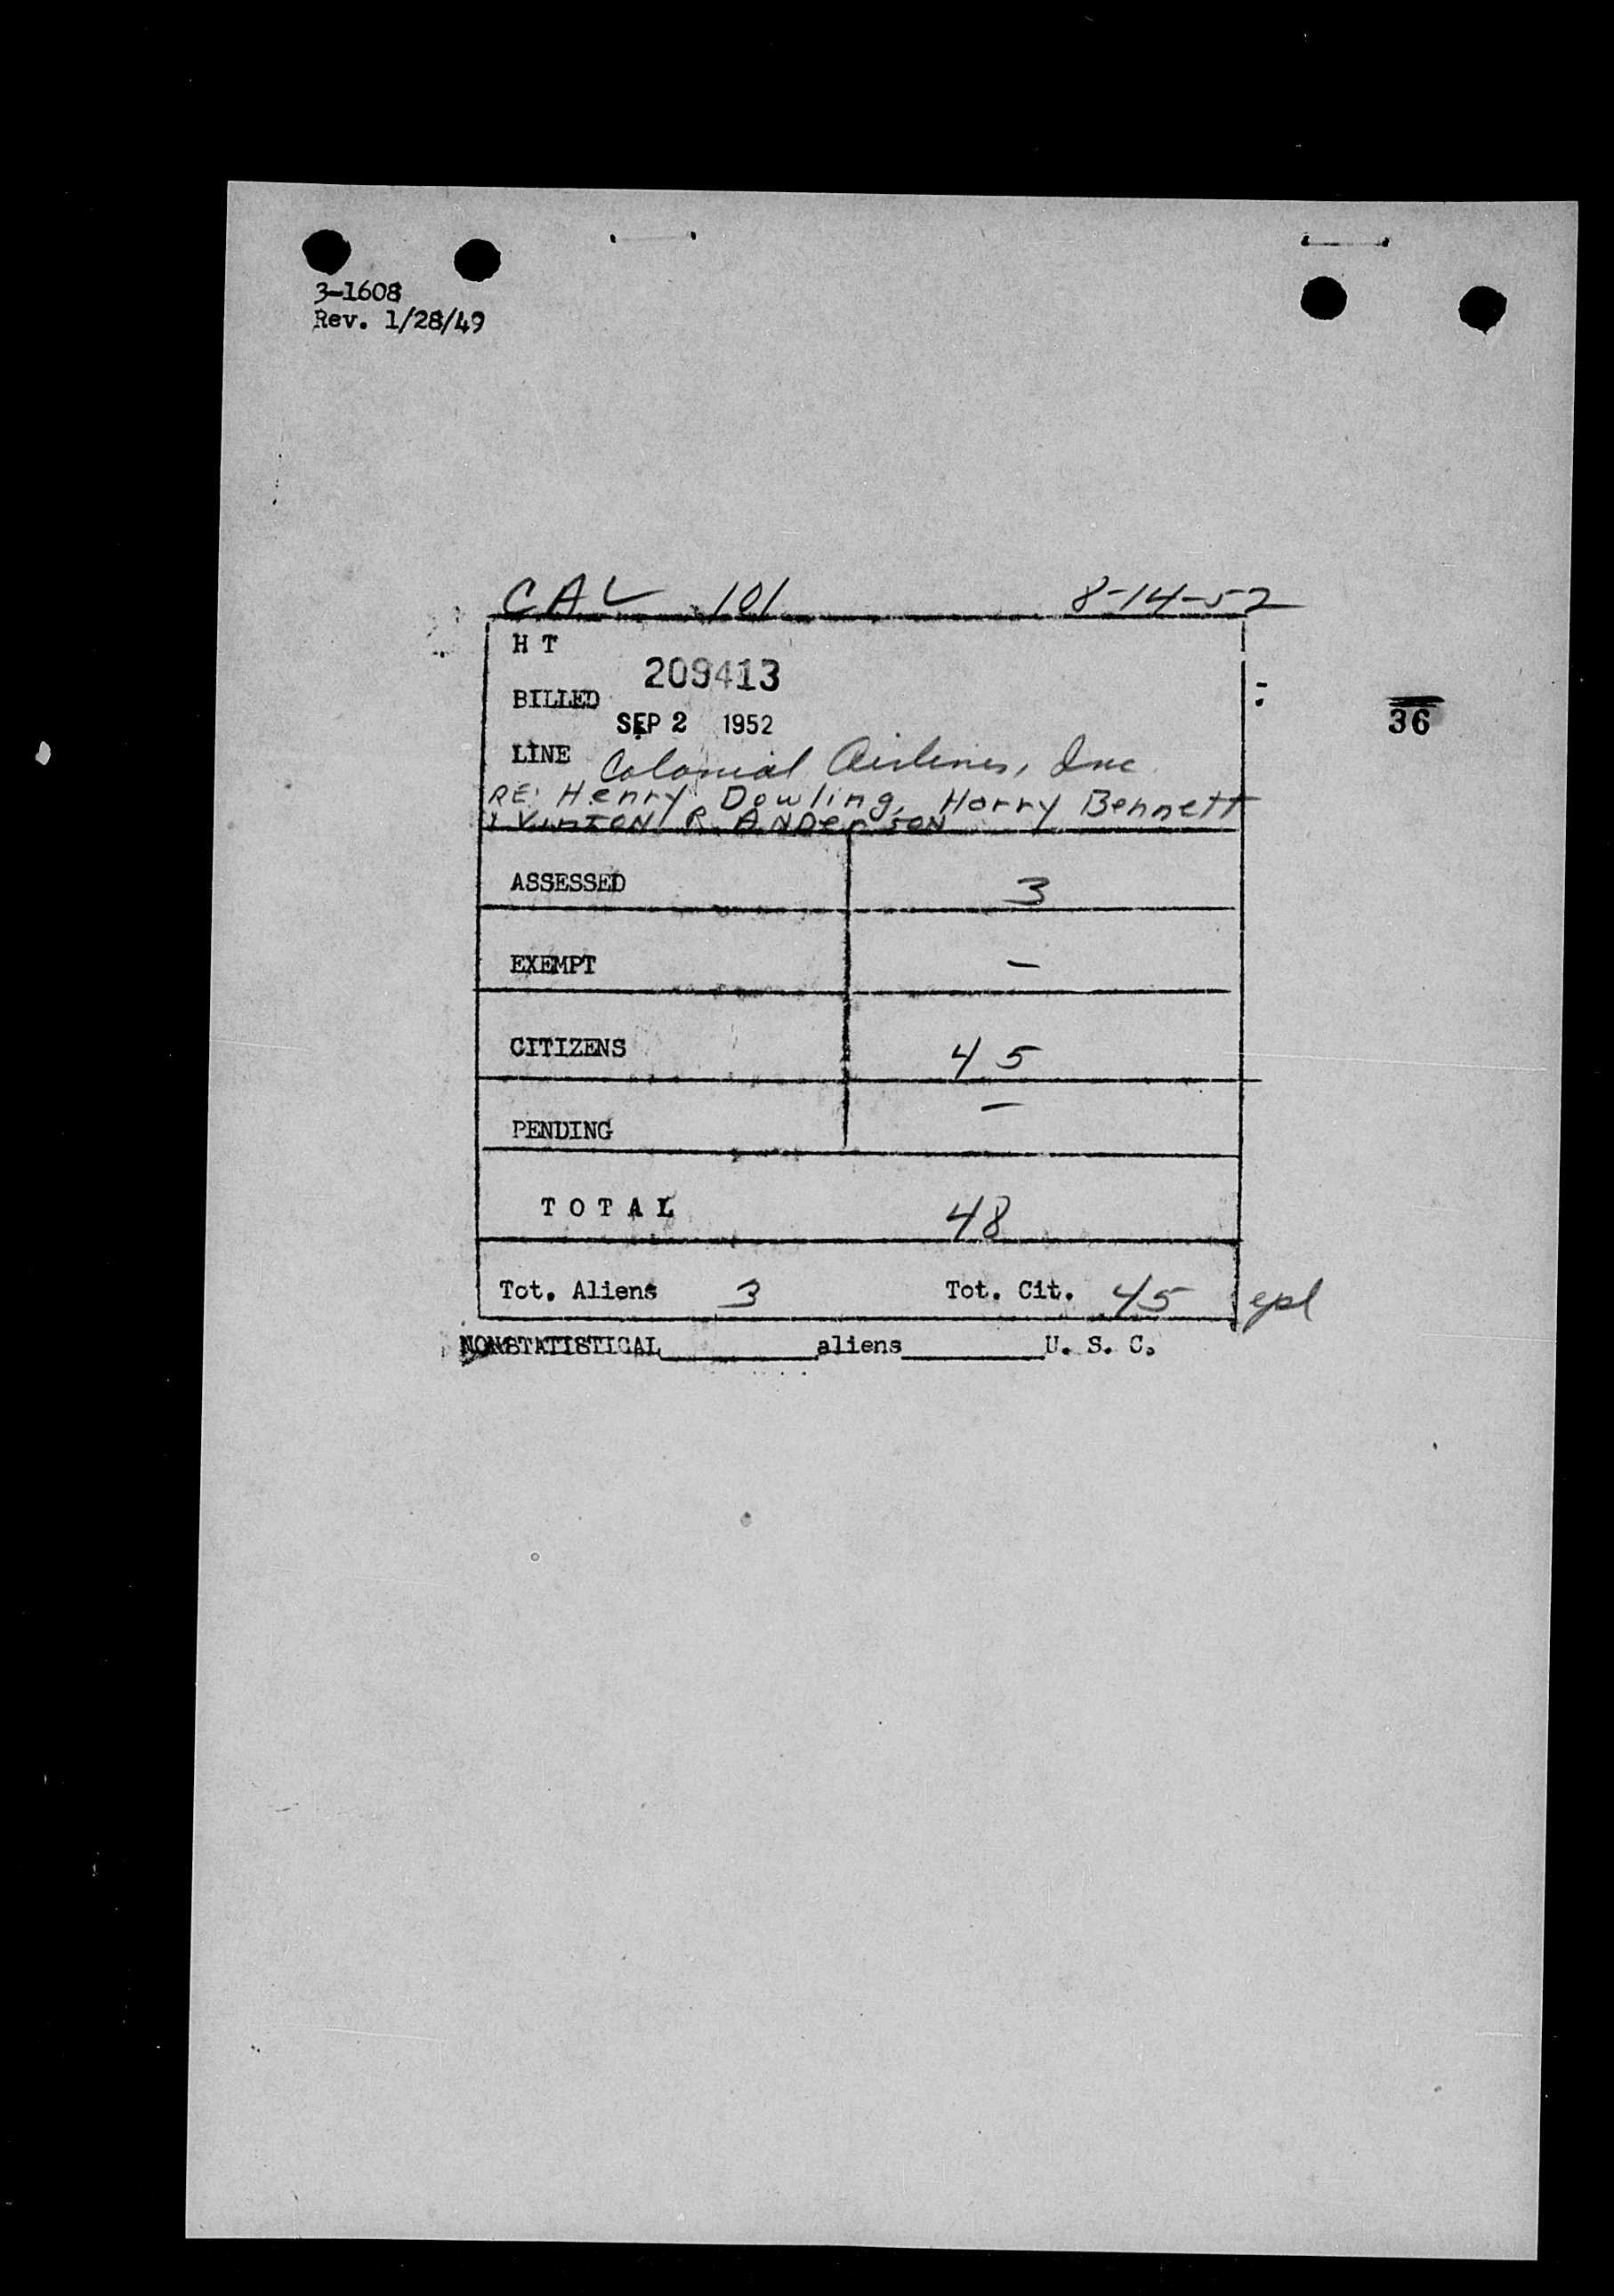 3-1608
Rev. 1/28/49
CAL 101 8-14-52
H T
209413
BILLED
SEP 2 1952
36
LINE Colonial Airlines, Inc.
RE: Henry Dowling, Harry Bennett
+ VINTON R ANDERSON
ASSESSED 3
EXEMPT –
CITIZENS 45
PENDING –
T O T A L 48
Tot. Aliens 3 Tot. Cit. 45 epl
NONSTATISTICAL________aliens________U. S. C.